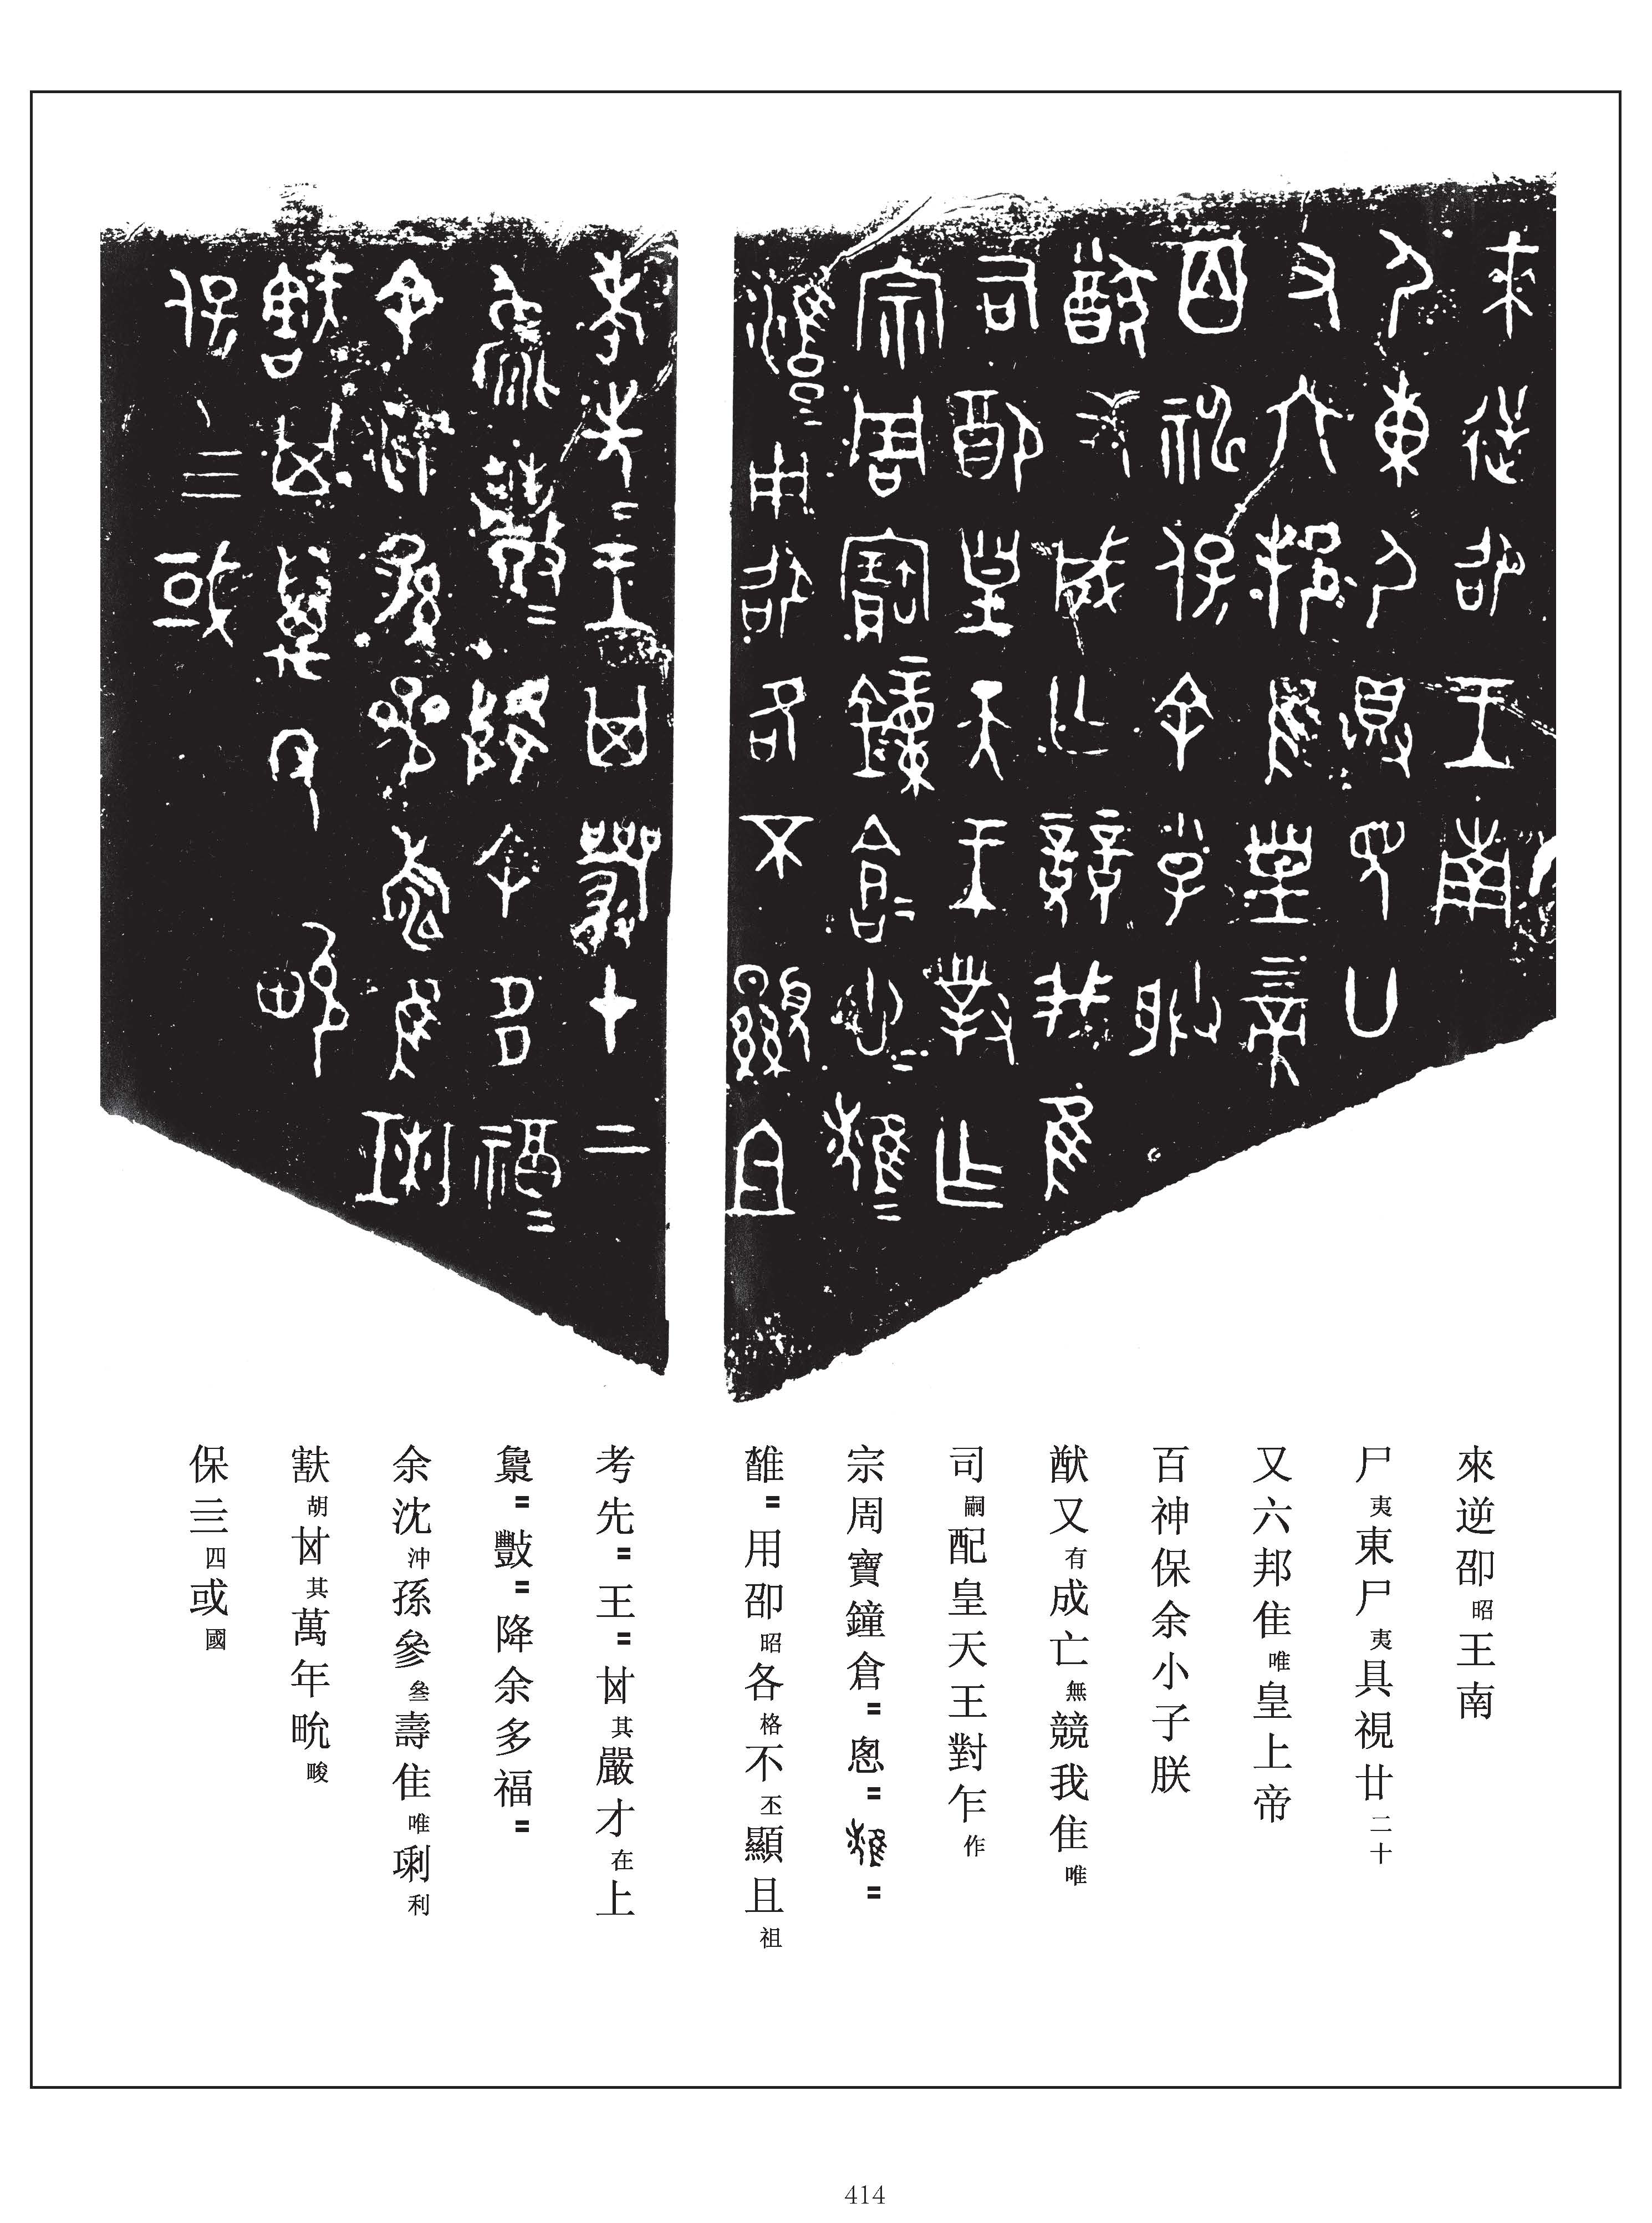 來逆卲昭王南
尸夷東尸夷具視廿二十
又六邦隹唯皇上帝
百神保余小子朕
猷又有成亡無競我隹唯
司嗣配皇天王對乍作
宗周寶鐘倉〓悤〓〓
雝〓用卲昭各格不丕顯且祖
考先〓王〓𠀠其嚴才在上
𣊫〓𢾭〓降余多福〓
余沈沖孫參叄壽隹唯琍利
㝬胡𠀠其萬年㽙畯
保亖四或國
414